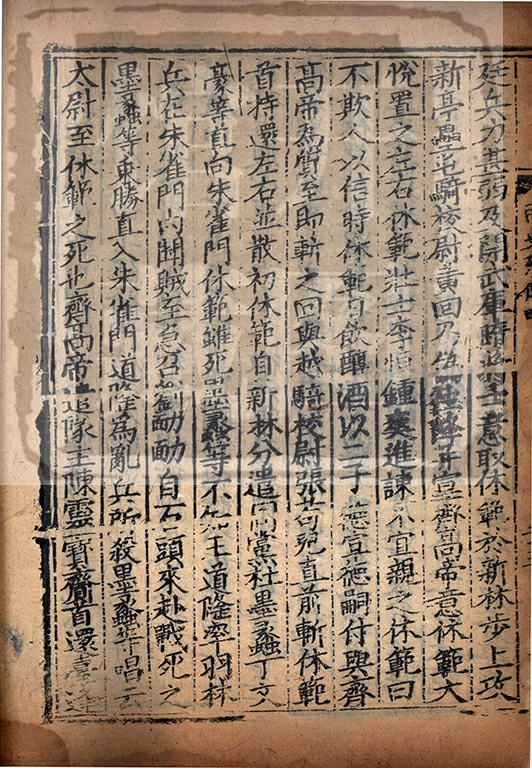 廷兵力甚弱及開武庫隨將士意取休範於新林步上攻
新亭壘屯騎校尉黃回乃偽往降并宣齊高帝意休範大
悅置之左右休範壯士李恒鍾爽進諫不宜親之休範曰
不欺人以信時休範日飲醇酒以二子德宣德嗣付與齊
高帝為質至即斬之回與越騎校尉張苟兒直前斬休範
首持還左右並散初休範自新林分遣同黨杜墨蠡丁文
豪等直向朱雀門休範雖死墨蠡等不知王道隆率羽林
兵在朱雀門內聞賊至急召劉勔勔自石頭來赴戰死之
墨蠡等乘勝直入朱雀門道隆為亂兵所殺墨蠡等唱云
太尉至休範之死也齊高帝遣隊主陳靈寶齎首還臺逢